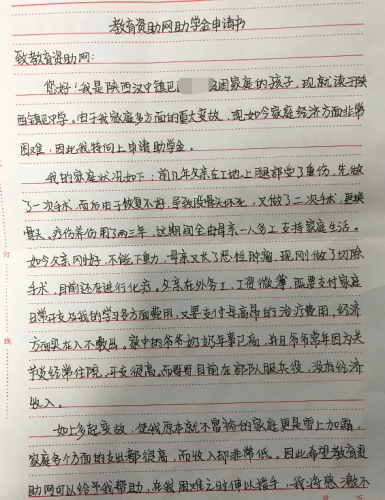 教育资助网助学金申请书
致教育资助网：
您好！我是陕西汉中镇巴 困家庭的孩子，现就读于陕
西镇巴中学。由于我家庭多方面的重大变故，现如今家庭经济方面非常
困难，因此我特向上申请助学金。
我的家庭状况如下：前几年父亲在工地上腿部受了重伤，先做
了一次手术，而后由于恢复不好，导致股骨头坏死，又做了二次手术，更换
骨头。疗伤养伤用了两三年，这期间全由母亲一人务工支持家庭生活。
如今父亲刚好，不能下重力，母亲又长了恶性肿瘤，现刚做了切除
手术，目前还在进行化疗。父亲在外务工，工资微薄，既要支付家庭
日常开支及我的学习各方面费用，又要支付母高昂的治疗费用，经济
方面实在入不敷出。家中的爷爷奶奶年事已高，并且爷爷常年因为关
节炎经常住院，开支很高。而哥哥目前在部队服兵役，没有经济
收入。
如上多起变故，使我原本就不富裕的家庭更是雪上加霜，
家庭各个方面的支出都很高，而收入却非常低。因此希望教育资
助网可以给予我帮助，在我困难之时伸以援手，我将感激不
订
线